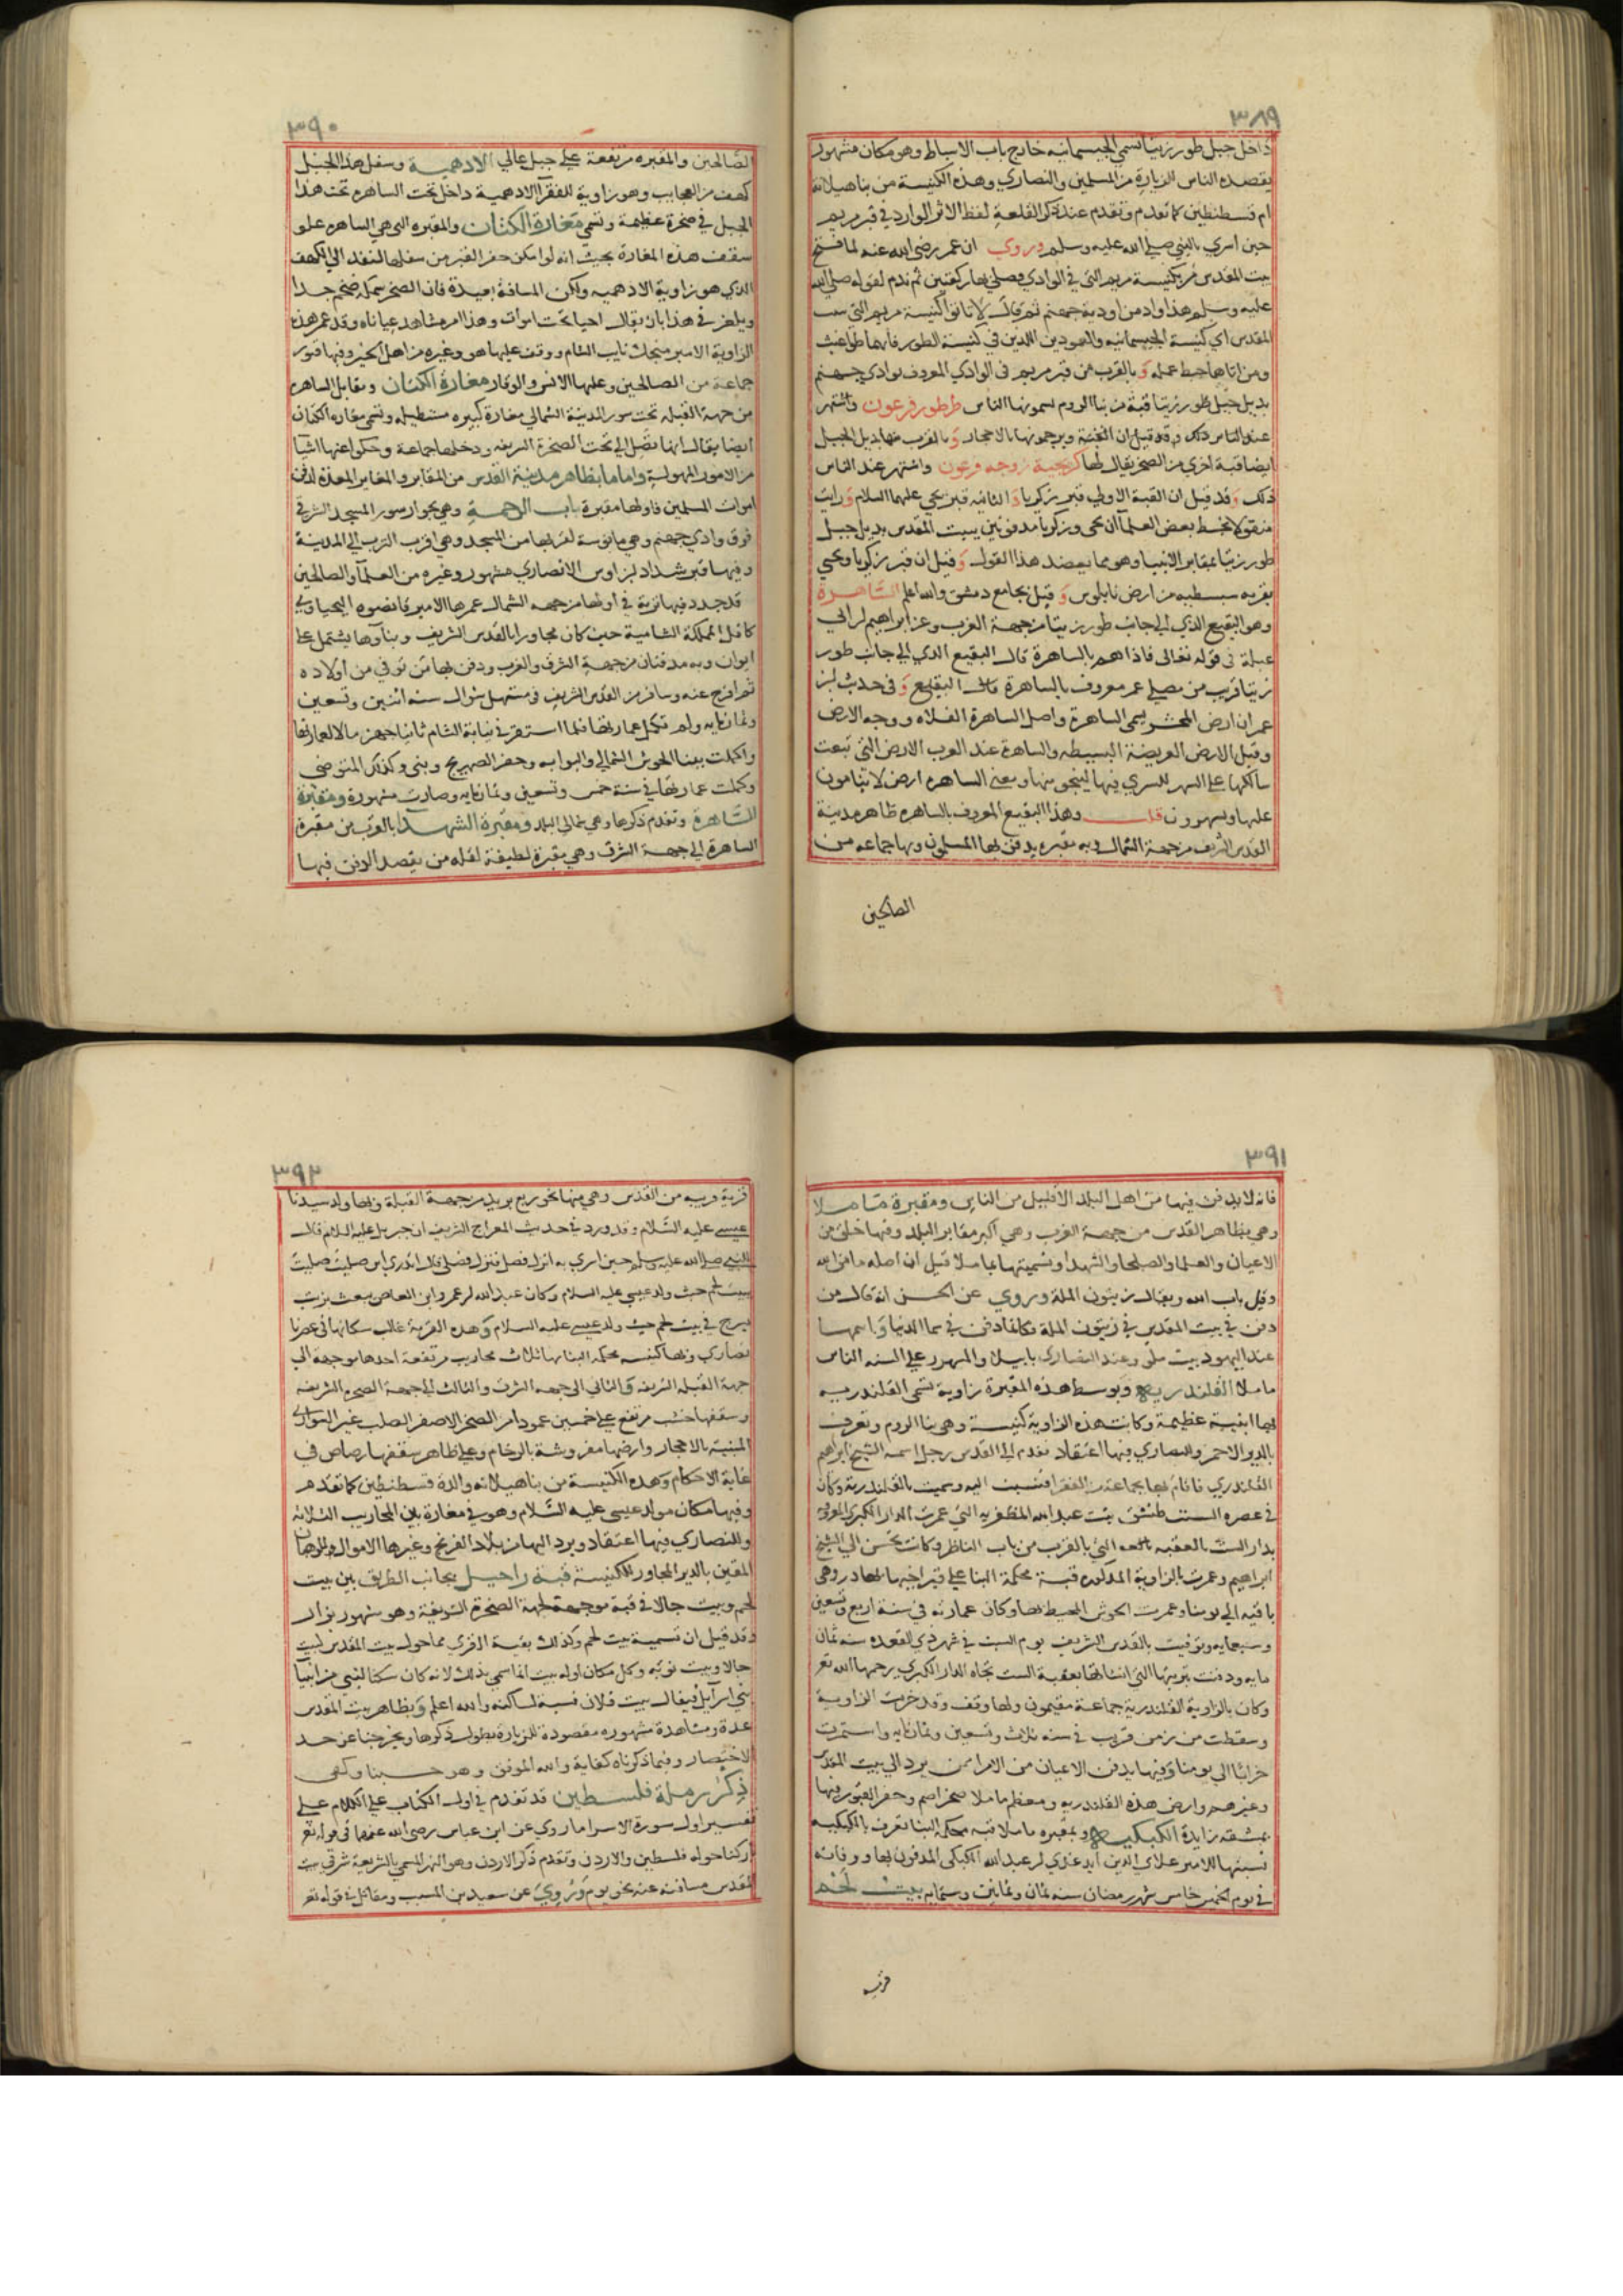 ٣٨٩
داخل جبل طور زيتا تسمي الجيسمانيه خارج باب الاسباط وهو مكان مشهور
يقصده الناس للزيارة من المسلمين والنصاري وهذه الكنيسة من بنا هيلانة
ام قسطنطين كما تقدم وتقدم عند ذكر القلعة لفظ الاثر الوارد في قبر مريم
حين اسري بالنبي صلي الله عليه وسلم وروي ان عمر رضي الله عنه لما فتح
بيت المقدس مر بكنيسة مريم التي في الوادي فصلي بها ركعتين ثم ندم لقوله صلي الله
عليه وسلم هذا واد من اودية جهنم ثم قال لا تاتوا كنيسة مريم التي ببيت
المقدس اي كنيسة الجيسمانيه والعمودين اللذين في كنيسة الطور فانها طواغيت
ومن اتاها حبط عمله وبالقرب من قبر مريم في الوادي المعروف بوادي جهنم
بديل جبل طور زيتا قبة من بنا الروم يسمونها الناس طرطور فرعون واشتهر
عند الناس ذلك وقد قيل ان القبة ويرجمونها بالاحجار وبالقرب منها بديل الجبل
ايضا قبة اخري من الصخر يقال لها كريجية زوجه فرعون واشتهر عند الناس
ذلك وقد قيل ان القبة الاولي قبر زكريا والثانيه قبر يحي عليهما السلام ورايت
منقولا بخط بعض العلمآ ان يحي وزكريا مدفونين ببيت المقدس بديل جبل
طور زيتا بمقابر الانبيا وهو مما يعضد هذا القول وقيل ان قبر زكريا ويحيي
بقريه سبسطيه من ارض نابلوس وقيل بجامع دمشق والله اعلم الساهرة
وهو البقيع الذي الي جانب طور زيتا من جهة الغرب وعن ابراهيم بن ابي
عبلة في قوله تعالى فاذا هم بالساهرة قال البقيع الذي الي جانب طور
زيتا قريب من مصلي عمر معروف بالساهرة قال البقيع وفي حديث ابن
عمر ان ارض المحشر يسمى الساهرة واصل الساهرة الفلاه ووجه الارض
وقيل الارض العريضة البسيطه والساهرة عند العرب الارض التي تبعث
سالكها علي السهر للسري فيها لينجو منها ومعنى الساهره ارض لا ينامون
عليها ويسهرون قلت وهذا البقيع المعروف بالساهره ظاهر مدينة
القدس الشريف من جهة الشمال وبه مقبره يدفن بها المسلمون وبها جماعه من
الصالحين
٣٩٠
الصالحين والمقبره مرتفعة علي جبل عالي الادهمية وسفل هذا الجبل
كهف من العجايب وهو زاوية للفقرآ الادهمية داخل تحت الساهره تحت هذا
الجبل في صخرة عظيمة وتسمي مغارة الكتان والمقبره التي هي الساهره علو
سقف هذه المغارة بحيث انه لو امكن حفر القبر من سفلها لنفد الي الكهف
الذي هو زاوية الادهميه ولكن المسافة بعيدة فان الصخر سمكه ضخم جدا
ويلغز في هذا بان يقال احيا تحت اموات وهذا امر مشاهد عيانا وقد عمر هذه
الزاوية الامير منجك نايب الشام ووقف عليها هو وغيره من اهل الخير وفيها قبور
جماعة من الصالحين وعليها الانس والوقار مغارة الكتان ومقابل الساهره
من جهة القبله تحت سور المدينة الشمالي مغارة كبيره مستطيله وتسمي مغاره الكتان
ايضا يقال انها تصل الي تحت الصخرة الشريفه ودخلها جماعة وحكوا عنها اشيا
من الامور المهولة واما ما بظاهر مدينة القدس من المقابر والمقابر المعده لدفن
اموات المسلمين فاولها مقبرة باب الرحمة وهي بجوار سور المسجد الشرقي
فوق وادي جهنم وهي مانوسة لقربها من المسجد وهي اقرب الترب الي المدينة
وفيها قبر شداد بن اوس الانصاري مشهور وغيره من العلمآ والصالحين
قد جدد فيها تربة في اولها من جهه الشمال عمرها الامير قانصوه اليحياوي
كافل المملكة الشامية حين كان مجاورا بالقدس الشريف وبناوها يشتمل علي
ايوان وبه مدفنان من جهة الشرق والغرب ودفن بها من توفي من اولاده
ثم افرج عنه وسافر من القدس الشريف في مستهل شوال سنه اثنين وتسعين
وثمانمايه ولم تكمل عمارتها فلما استقر في نيابة الشام ثانيا جهز مالا لعمارتها
واكملت ببنا الحوش الشمالي والبوابه وحفر الصهريج وبني وكذلك المتوضي
وكملت عمارتها في سنة خمس وتسعين وثمانمايه وصارت مشهورة ومقبرة
الساهرة وتقدم ذكرها وهي شمالي البلد ومقبرة الشهدآ بالقرب من مقبرة
الساهرة الي جهة الشرق وهي مقبرة لطيفة لقله من يقصد الدفن فيها
٣٩١
فانه لا يدفن فيها من اهل البلد الا قليل من الناس ومقبرة ماملا
وهي بظاهر القدس من جهة الغرب وهي اكبر مقابر البلد وفيها خلق من
الاعيان والعلما والصلحا والشهدا وتسميتها بماملا قيل ان اصله مامن الله
وقيل باب الله ويقال زيتون الملة وروي عن الحسن انه قال من
دفن في بيت المقدس في زيتون الملة فكانما دفن في سما الدنيا واسمها
عند اليهود بيت ملو وعند النصاري بابيلا والمشهور علي السنه الناس
ماملا القلندريه وبوسط هذه المقبرة زاوية تسمي القلندريه
بها ابنية عظيمة وكانت هذه الزاوية كنيسة وهي بنا الروم وتعرف
بالدير الاحمر وللنصاري فيها اعتقاد فقدم الي القدس رجل اسمه الشيخ ابراهيم
القلندري فاقام بها بجماعة من الفقرا فنسبت اليه وسميت بالقلندرية وكان
في عصره الست طنشق بنت عبد الله المظفريه التي عمرت الدار الكبري المعروفة
بدار الست بالعقبه التي بالقرب من باب الناظر وكانت تحسن الي الشيخ
ابراهيم وعمرت بالزاوية المذكوره قبة محكمة البنا علي قبر اخيها بهادر وهي
باقيه الي يومنا وعمرت الحوش المحيط بها وكان عمارته في سنة اربع وتسعين
وسبعمايه وتوفيت بالقدس الشريف يوم السبت في شهر ذي القعده سنه ثمان
مايه ودفنت بتربتها التي انشاتها بعقبة الست تجاه الدار الكبري يرحمها الله تع
وكان بالزاوية القلندرية جماعة مقيمون ولها وقف وقد خربت الزاوية
وسقطت من زمن قريب في سنه ثلاث وتسعين وثمانمايه واستمرت
خرابا الي يومنا وفيها يدفن الاعيان من الامرا ممن يرد الي بيت المقدس
وغيرهم وارض هذه القلندريه ومعظم ماملا صخر اصم وحفر القبور فيها
بمشقه زايدة الكبكيه وبمقبره ماملا قبه محكمة البنا تعرف بالكبكيه
نسبتها للامير علاي الدين ايدغدي بن عبد الله الكبكي المدفون بها ووفاته
في يوم الخميس خامس شهر رمضان سنه ثمان وثمانين وستمايه بيت لحم
قريه
٣٩٢
قرية قريبه من القدس وهي منها بنحو ربع بريد من جهة القبلة وبها ولد سيدنا
عيسي عليه السلام وقد ورد في حديث المعراج الشريف ان جبريل عليه السلام قال
للنبي صلي الله عليه وسلم حين اسري به انزل فصل فنزل فصلي قال اتدري اين صليت صليت
ببيت لحم حيث ولد عيسي عليه السلام وكان عبد الله بن عمرو ابن العاص يبعث بزيت
يسرج في بيت لحم حيث ولد عيسي عليه السلام وهذه القرية غالب سكانها في عصرنا
نصاري وبها كنيسه محكمه البنا بها ثلاث محاريب مرتفعة احدها موجهه الي
جهة القبله الشريفه والثاني الي جهه الشرق والثالث الي جهة الصخره الشريفه
وسقفها خشب مرتفع علي خمسين عمودا من الصخر الاصفر الصلب غير السواري
المبنية بالاحجار وارضها مفروشة بالرخام وعلي ظاهر سقفها رصاص في
غاية الاحكام وهذه الكنيسة من بنا هيلانه والدة قسطنطين كما تقدم
وفيها مكان مولد عيسي عليه السلام وهو في مغارة بين المحاريب الثلاثه
وللنصاري فيها اعتقاد ويرد اليها من بلاد الفرنج وغيرها الاموال والرهبان
المقيمن بالدير المجاور للكنيسة قبة راحيل بجانب الطريق بين بيت
لحم وبيت جالا في قبة موجهة لجهة الصخرة الشريفة وهو مشهور يزار
وقد قيل ان تسمية بيت لحم وكذلك بقية القري مما حول بيت المقدس كبيت
جالا وبيت نوبه وكل مكان اوله بيت انما سمي بذلك لانه كان سكنا لنبي من انبيآ
بني اسرآئيل فيقال بيت فلان نسبة لساكنه والله اعلم وبظاهر بيت المقدس
عدة مشاهدة مشهوره مقصودة للزيارة يطول ذكرها ويخرجنا عن حد
الاختصار وفيما ذكرناه كفاية والله الموفق وهو حسبنا وكفي
ذكر رملة فلسطين قد تقدم في اول الكتاب على الكلام علي
تفسير اول سورة الاسرا ما روي عن ابن عباس رضي الله عنهما في قوله تع
باركنا حوله فلسطين والاردن وتقدم ذكر الاردن وهو النهر المسمي بالشريعة شرقي بيت
المقدس مسافته عنه نحو يوم وروي عن سعيد بن المسيب ومقاتل في قوله تع